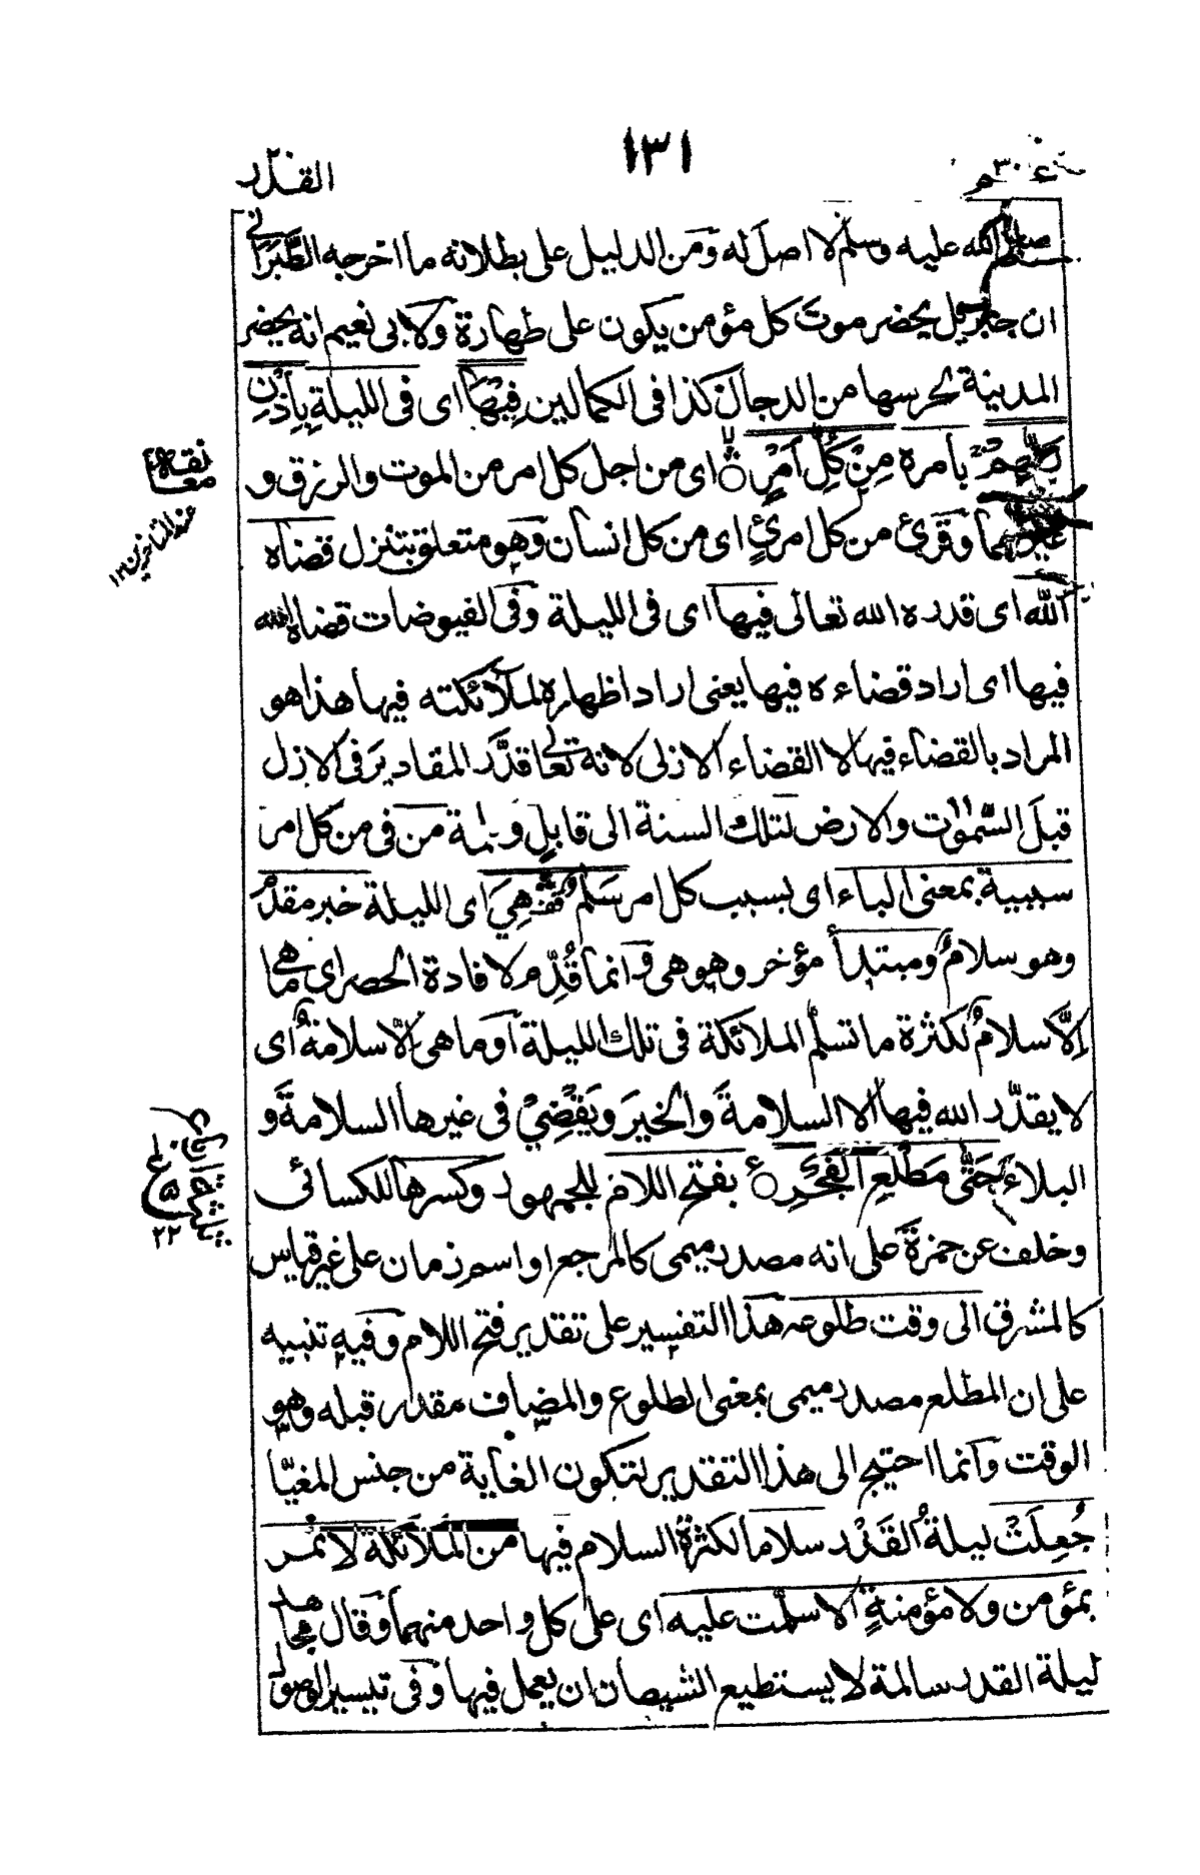 ١٣١
القدر
الله عليه وسلم لا اصل له ومن الدليل على بطلانه ما اخرجه الطَّبَرَانى
ان جبريل يحضر موت كل مؤمن يكون على طهارة ولابى نعيم انه يحضر
المدينة لحرسها من الدجال كذا فى الكمالين فِيْهَا اى فى الليلة بِإِذْنِ
رَبِّهِمْ بأمره مِنْ كُلِّ اَمْرٍ اى من اجل كل امر من الموت والرزق و
غيرهما وقرئ من كل امرئٍ اى من كل انسان وهو متعلق بتنزل قضاه
الله اى قدره الله تعالى فيها اى فى الليلة وفى الفيوضات قضاه الله
فيها اى اراد قضاءه فيها يعنى اراد اظهاره لملآئكته فيها هذا هو
المراد بالقضاء فيها لا القضاء الازلى لانه تعالى قدَّر المقادير فى الازل
قبلَ السَّموٰت والارض لتلك السنة الى قابلٍ وبمة من فى من كل امر
سببية بمعنى الباء اى بسبب كل امر سَلٰمٌ هِيَ اى الليلة خبر مقدَّم
وهو سلامٌ ومبتدأ مؤخر وهو هى وانما قُدِّم لافادة الحصر اى ما هى
اِلَّا سلامٌ لكثرة ما تسلّم الملائكة فى تلك الليلة اَو ما هى اِلّا سلامة اى
لا يقدّر الله فيها الا السلامةَ والخيرَ ويَقْضِيْ فى غيرها السلامةَ و
البلاءَ حَتّٰى مَطْلَعِ الْفَجْرِ بفتح اللام للجمهور وكسرها للكسائى
وخلف عن حمزةَ على انه مصدر ميمى كالمرجع او اسم زمان على غير قياس
كالمشرق الى وقت طلوعه هذا التفسير على تقدير فتح اللام وفيه تنبيه
على ان المطلع مصدر ميمى بمعنى الطلوع والمضاف مقدر قبله وهو
الوقت وانما احتيج الى هذا التقدير لتكون الغاية من جنس المغيّا
جُعِلَتْ ليلةُ القَدْر سلاما لكثرة السلام فيها من الملآئكة لا تمر
بمؤمن ولا مؤمنةٍ الا سلّمت عليه اى على كل واحد منهما وقال مجاهد
ليلة القدر سالمة لا يستطيع الشيطان ان يعمل فيها وفى تيسير الوصول
معانقة
عند المتاخرين ١٢
ع
٥
٢٢